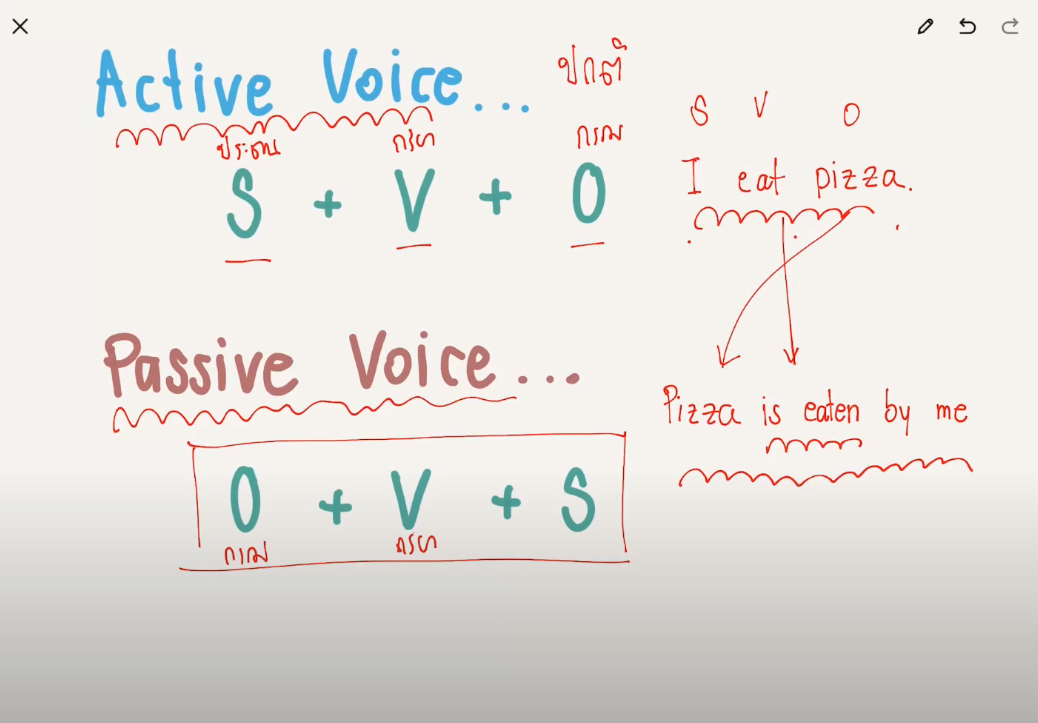 Active Voice... ปกติ
ประธาน กริยา กรรม
S + V + O
S V O
I eat pizza.
Passive Voice...
O + V + S
กรรม กริยา
Pizza is eaten by me